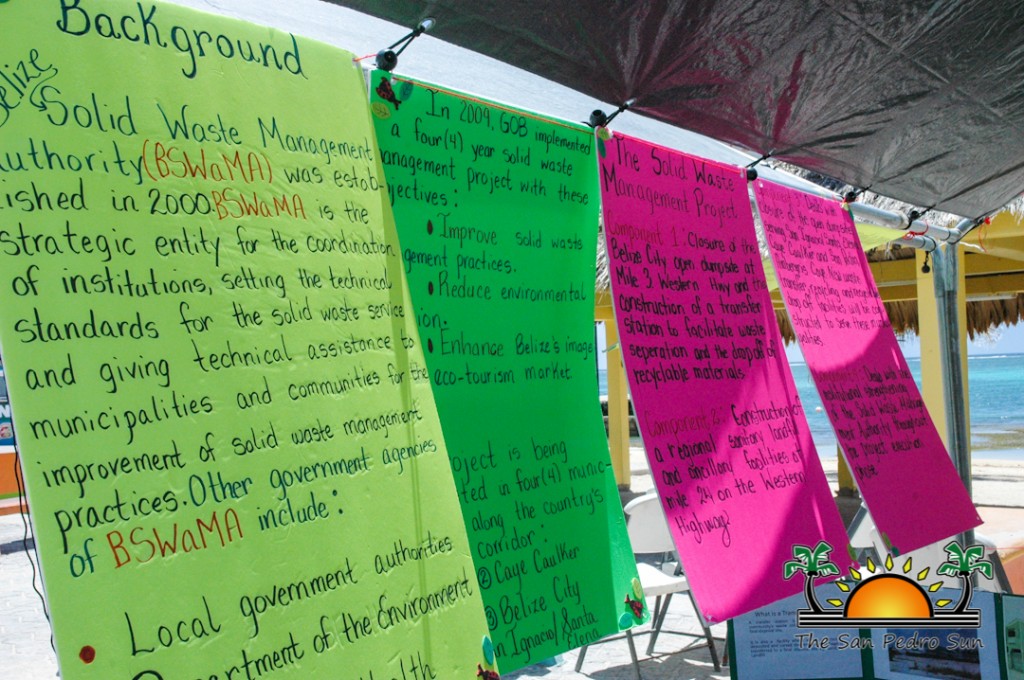 Background
Belize
Solid Waste Management
Authority (BSWaMA) was estab-
lished in 2000. BSWaMA is the
strategic entity for the coordination
of institutions, setting the technical
standards for the solid waste service
and giving technical assistance to
municipalities and communities for the
improvement of solid waste management
practices. Other government agencies
of BSWaMA include:
Local government authorities
Department of the Environment
Health
In 2009, GOB implemented
a four(4) year solid waste
management project with these
jectives:
• Improve solid waste
gement practices.
• Reduce environmental
ion.
• Enhance Belize's image
eco-tourism market
oject is being
ted in four(4) munic-
along the country's
corridor:
② Caye Caulker
③ Belize City
an Ignacio/Santa
Elena
The Solid Waste
Management Project
Component 1: Closure of the
Belize City open dumpsite at
Mile 3, Western Hwy and the
construction of a transfer
station to facilitate waste
seperation and the drop off of
recyclable materials.
Component 2: Construction of
a regional sanitary landfill
and ancillary facilities at
mile 24 on the Western
Highway
Deals with
closure of the open dumpsites
Caye Caulker and San Pedro
Deals with the
institutional strengthening
of the Solid Waste Manage-
ment Authority throughout
the project execution
phase.
What is a
The San Pedro Sun